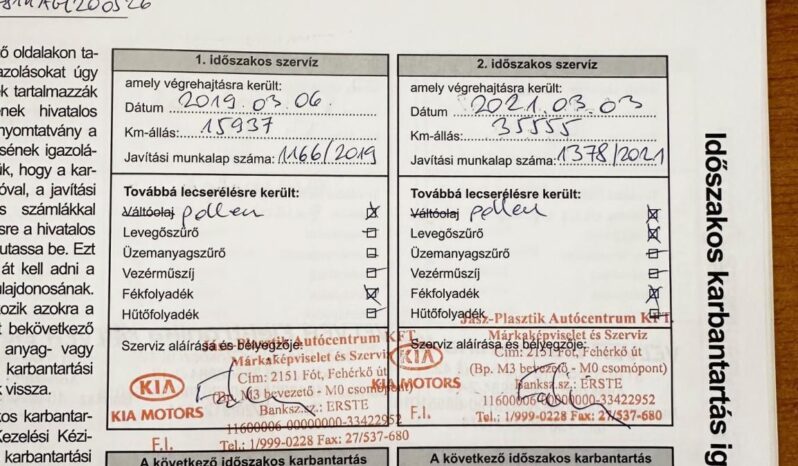 ő oldalakon ta-
azolásokat úgy
k tartalmazzák
ének hivatalos
nyomtatvány a
sének igazolá-
ük, hogy a kar-
óval, a javítási
s számlákkal
sre a hivatalos
utassa be. Ezt
át kell adni a
ulajdonosának.
kozik azokra a
t bekövetkező
anyag- vagy
karbantartási
vissza.
kos karbantar-
Kezelési Kézi-
karbantartási
1. időszakos szervíz
amely végrehajtásra került:
Dátum 2019.03.06.
Km-állás: 15937
Javítási munkalap száma: 1166/2019
Továbbá lecserélésre került:
Váltóolaj pollen
Levegőszűrő
Üzemanyagszűrő
Vezérműszíj
Fékfolyadék
Hűtőfolyadék
Szerviz aláírása és bélyegzője:
Jász-Plasztik Autócentrum KFT.
Márkaképviselet és Szerviz
Cím: 2151 Fót, Fehérkő út
(Bp. M3 bevezető - M0 csomópont)
Banksz.sz.: ERSTE
11600006-00000000-33422952
Tel.: 1/999-0228 Fax: 27/537-680
KIA
KIA MOTORS
F.I.
A következő időszakos karbantartás
2. időszakos szervíz
amely végrehajtásra került:
Dátum 2021.03.03
Km-állás: 35555
Javítási munkalap száma: 1378/2021
Továbbá lecserélésre került:
Váltóolaj pollen
Levegőszűrő
Üzemanyagszűrő
Vezérműszíj
Fékfolyadék
Hűtőfolyadék
Szerviz aláírása és bélyegzője:
Jász-Plasztik Autócentrum KFT.
Márkaképviselet és Szerviz
Cím: 2151 Fót, Fehérkő út
(Bp. M3 bevezető - M0 csomópont)
Banksz.sz.: ERSTE
11600006-00000000-33422952
Tel.: 1/999-0228 Fax: 27/537-680
KIA
KIA MOTORS
F.I.
A következő időszakos karbantartás
Időszakos karbantartás ig